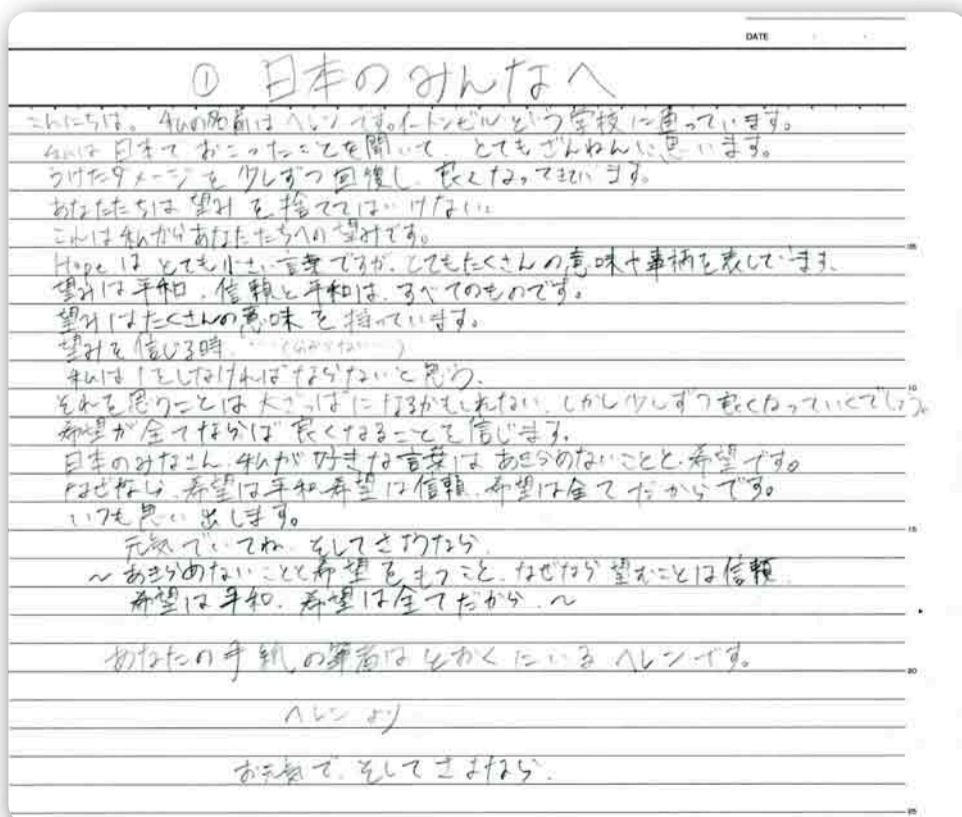 DATE
① 日本のみんなへ
こんにちは。私の名前はヘレンです。イートンビルという学校に通っています。
私は日本でおこったことを聞いて、とてもざんねんに思います。
うけたダメージを少しずつ回復し、良くなってきています。
あなたたちは望みを捨ててはいけない。
これは私からあなたたちへの望みです。
Hopeはとても小さい言葉ですが、とてもたくさんの意味や事柄を表しています。
望みは平和、信頼と平和は、すべてのものです。
望みはたくさんの意味を持っています。
望みを信じる時、…(分からない…)
私は 1をしなければならないと思う、
それを思うことは大ざっぱになるかもしれない、しかし少しずつ良くなっていくでしょう。
希望が全てならば良くなることを信じます。
日本のみなさん、私が好きな言葉はあきらめないことと、希望です。
なぜなら、希望は平和、希望は信頼、希望は全てだからです。
いつも思い出します。
元気でいてね、そしてさようなら、
～あきらめないことと希望をもつこと、なぜなら望むことは信頼、
希望は平和、希望は全てだから、～
あなたの手紙の筆者はとおくにいるヘレンです。
ヘレンより
お元気で、そしてさよなら、
05
10
15
20
25